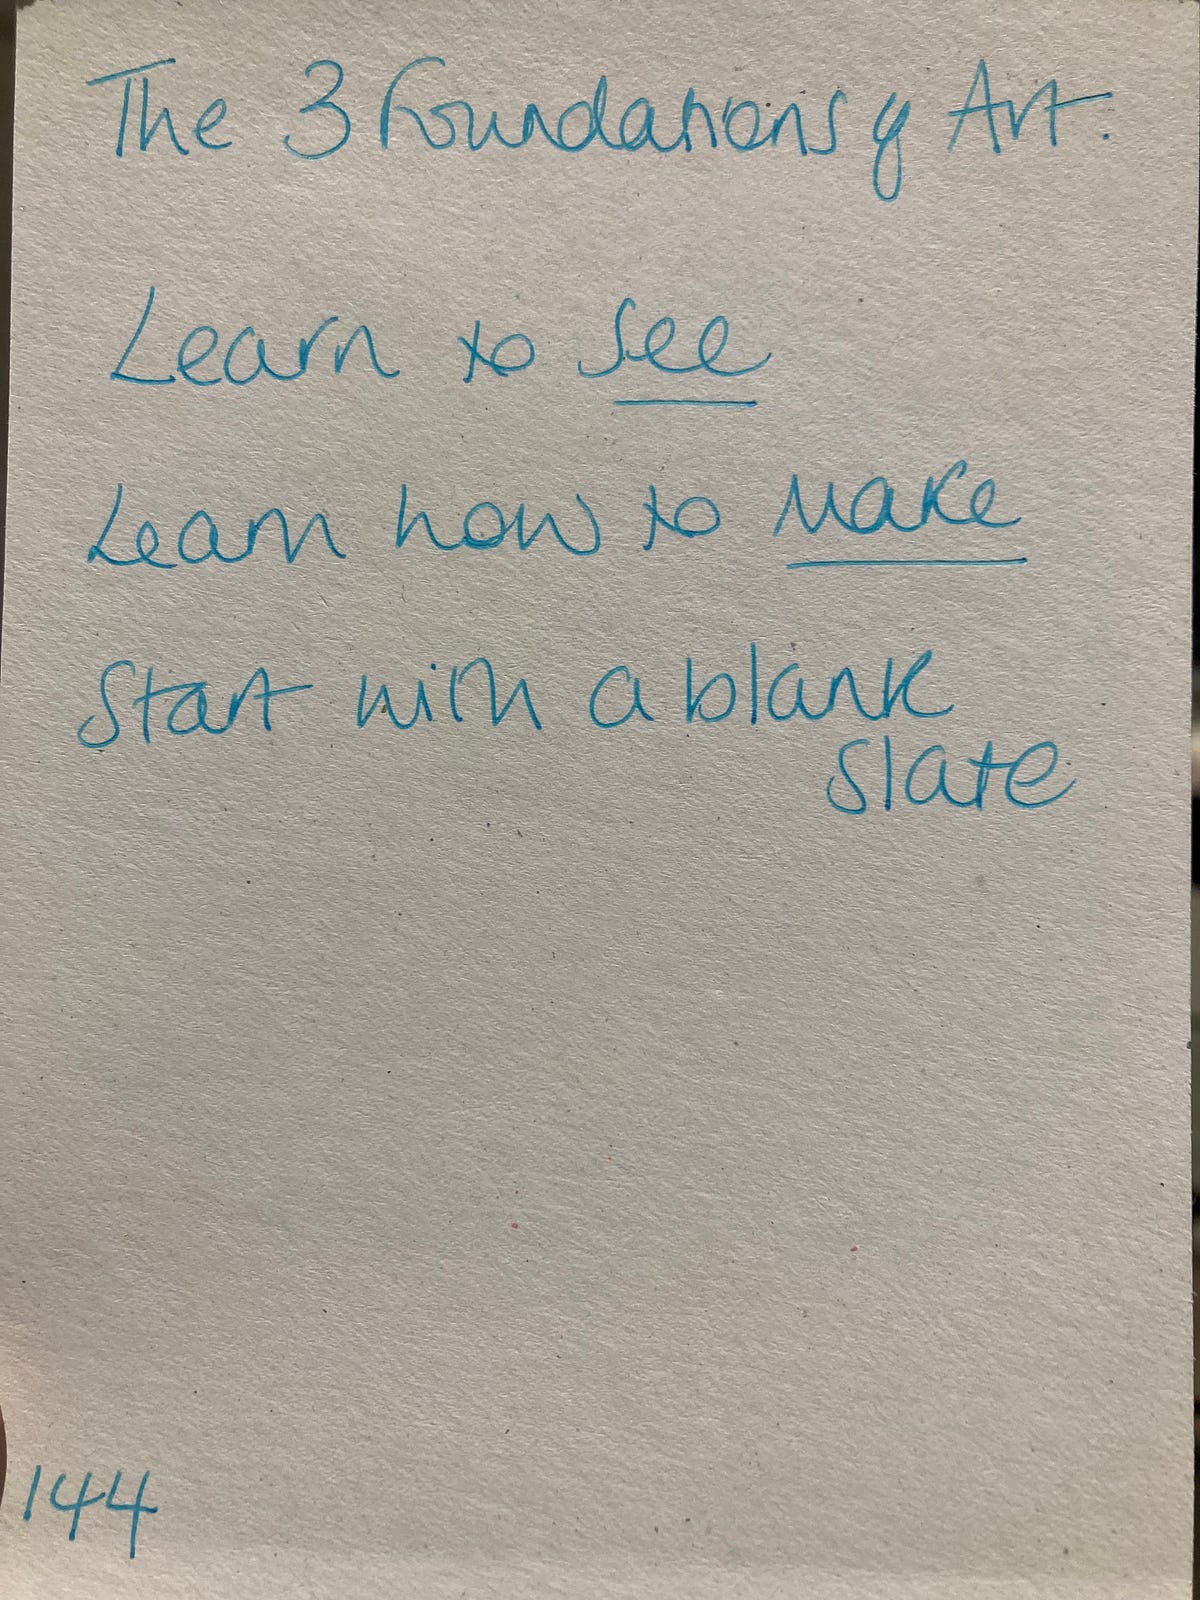 The 3 foundations of Art.
Learn to see
Learn how to make
Start with a blank
slate
144